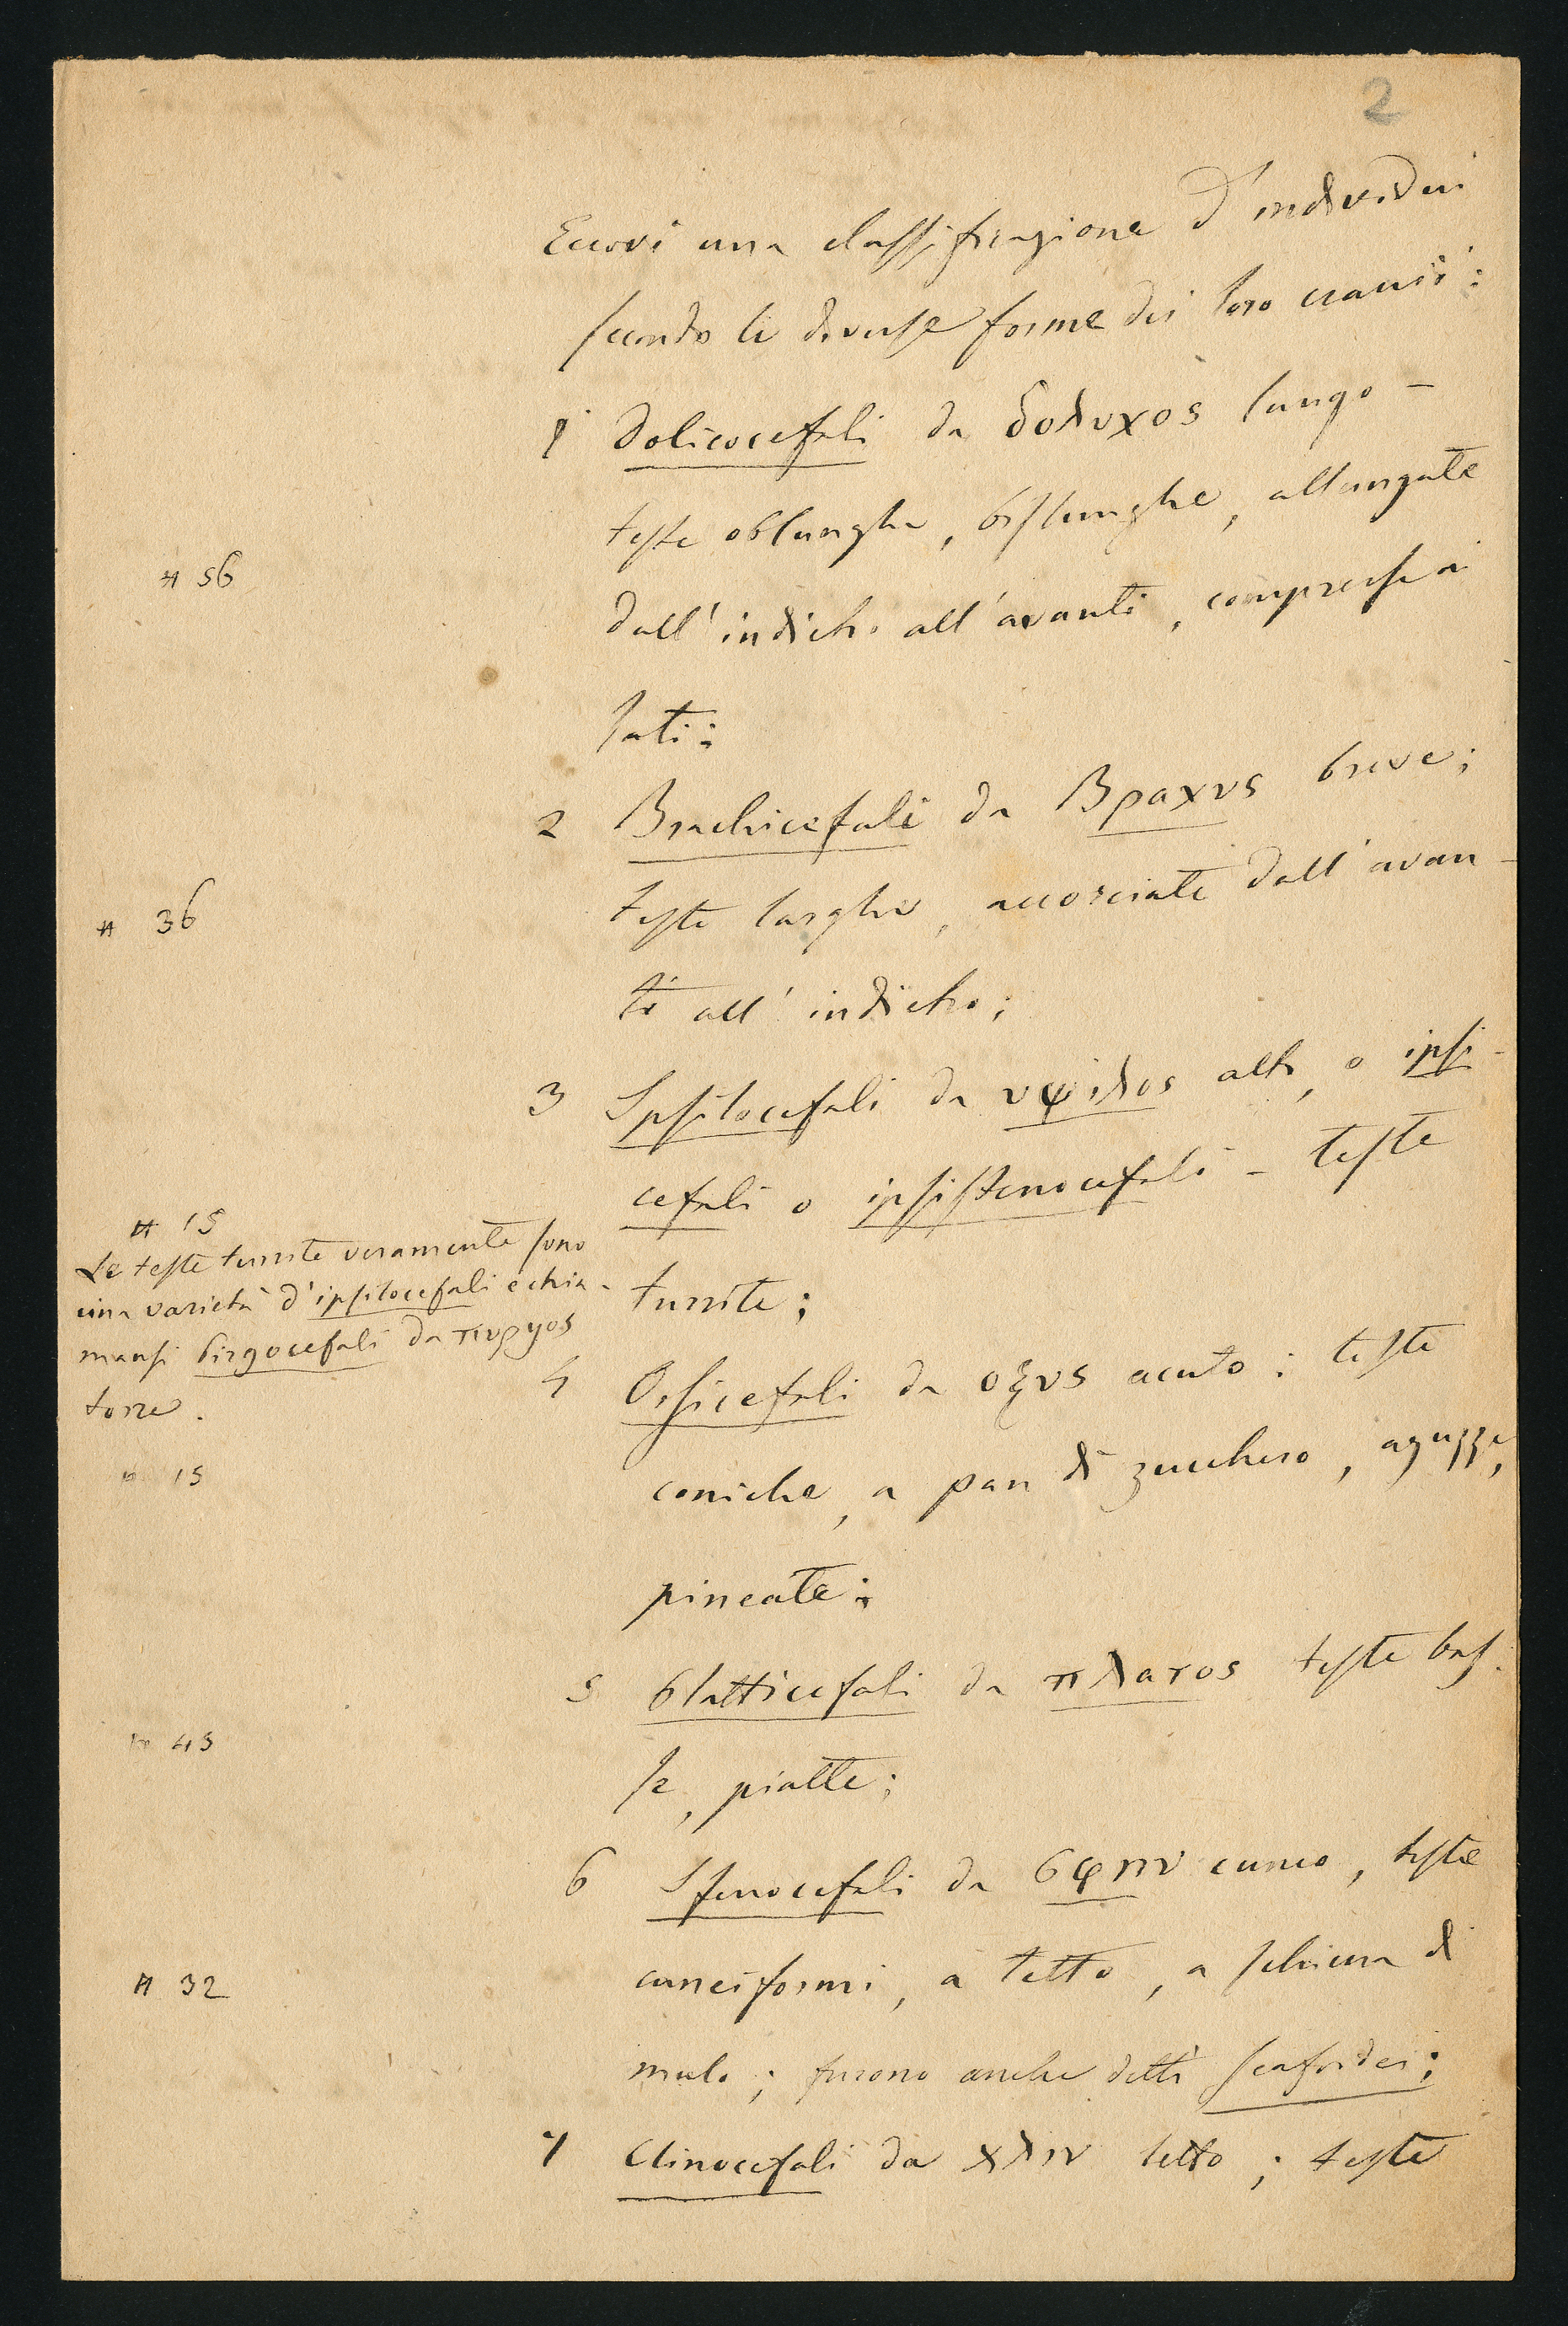 2
Eccovi una classificazione d'individui
secondo le diverse forme dei loro cranii:
1 Dolicocefali da δολυχος lungo –
teste oblunghe, bislunghe, allungate
dall'indietro all'avanti, compresse ai
# 56
lati:
2 Brachicefali da Βραχυς breve;
teste larghe, accorciate dall'avan-
# 36
ti all'indietro;
3 Ipsilocefali da υψιλος alto, o ipsi-
cefali o ipsistenocefali – teste
turrite;
# 15
Le teste turrite veramente sono
una varietà d'ipsilocefali e chia-
mansi birgocefali da πυργος
torre.
4 Ossicefali da οξυς acuto: teste
coniche, a pan di zucchero, aguzze,
15
pineate:
5 blatticefali da πλατος teste bas-
43
se, piatte;
6 Sfenocefali da σφην cuneo, teste
cuneiformi, a tetto, a schiena di
# 32
mulo; furono anche detti scafoidei:
7 Clinocefali da χλιν letto; teste